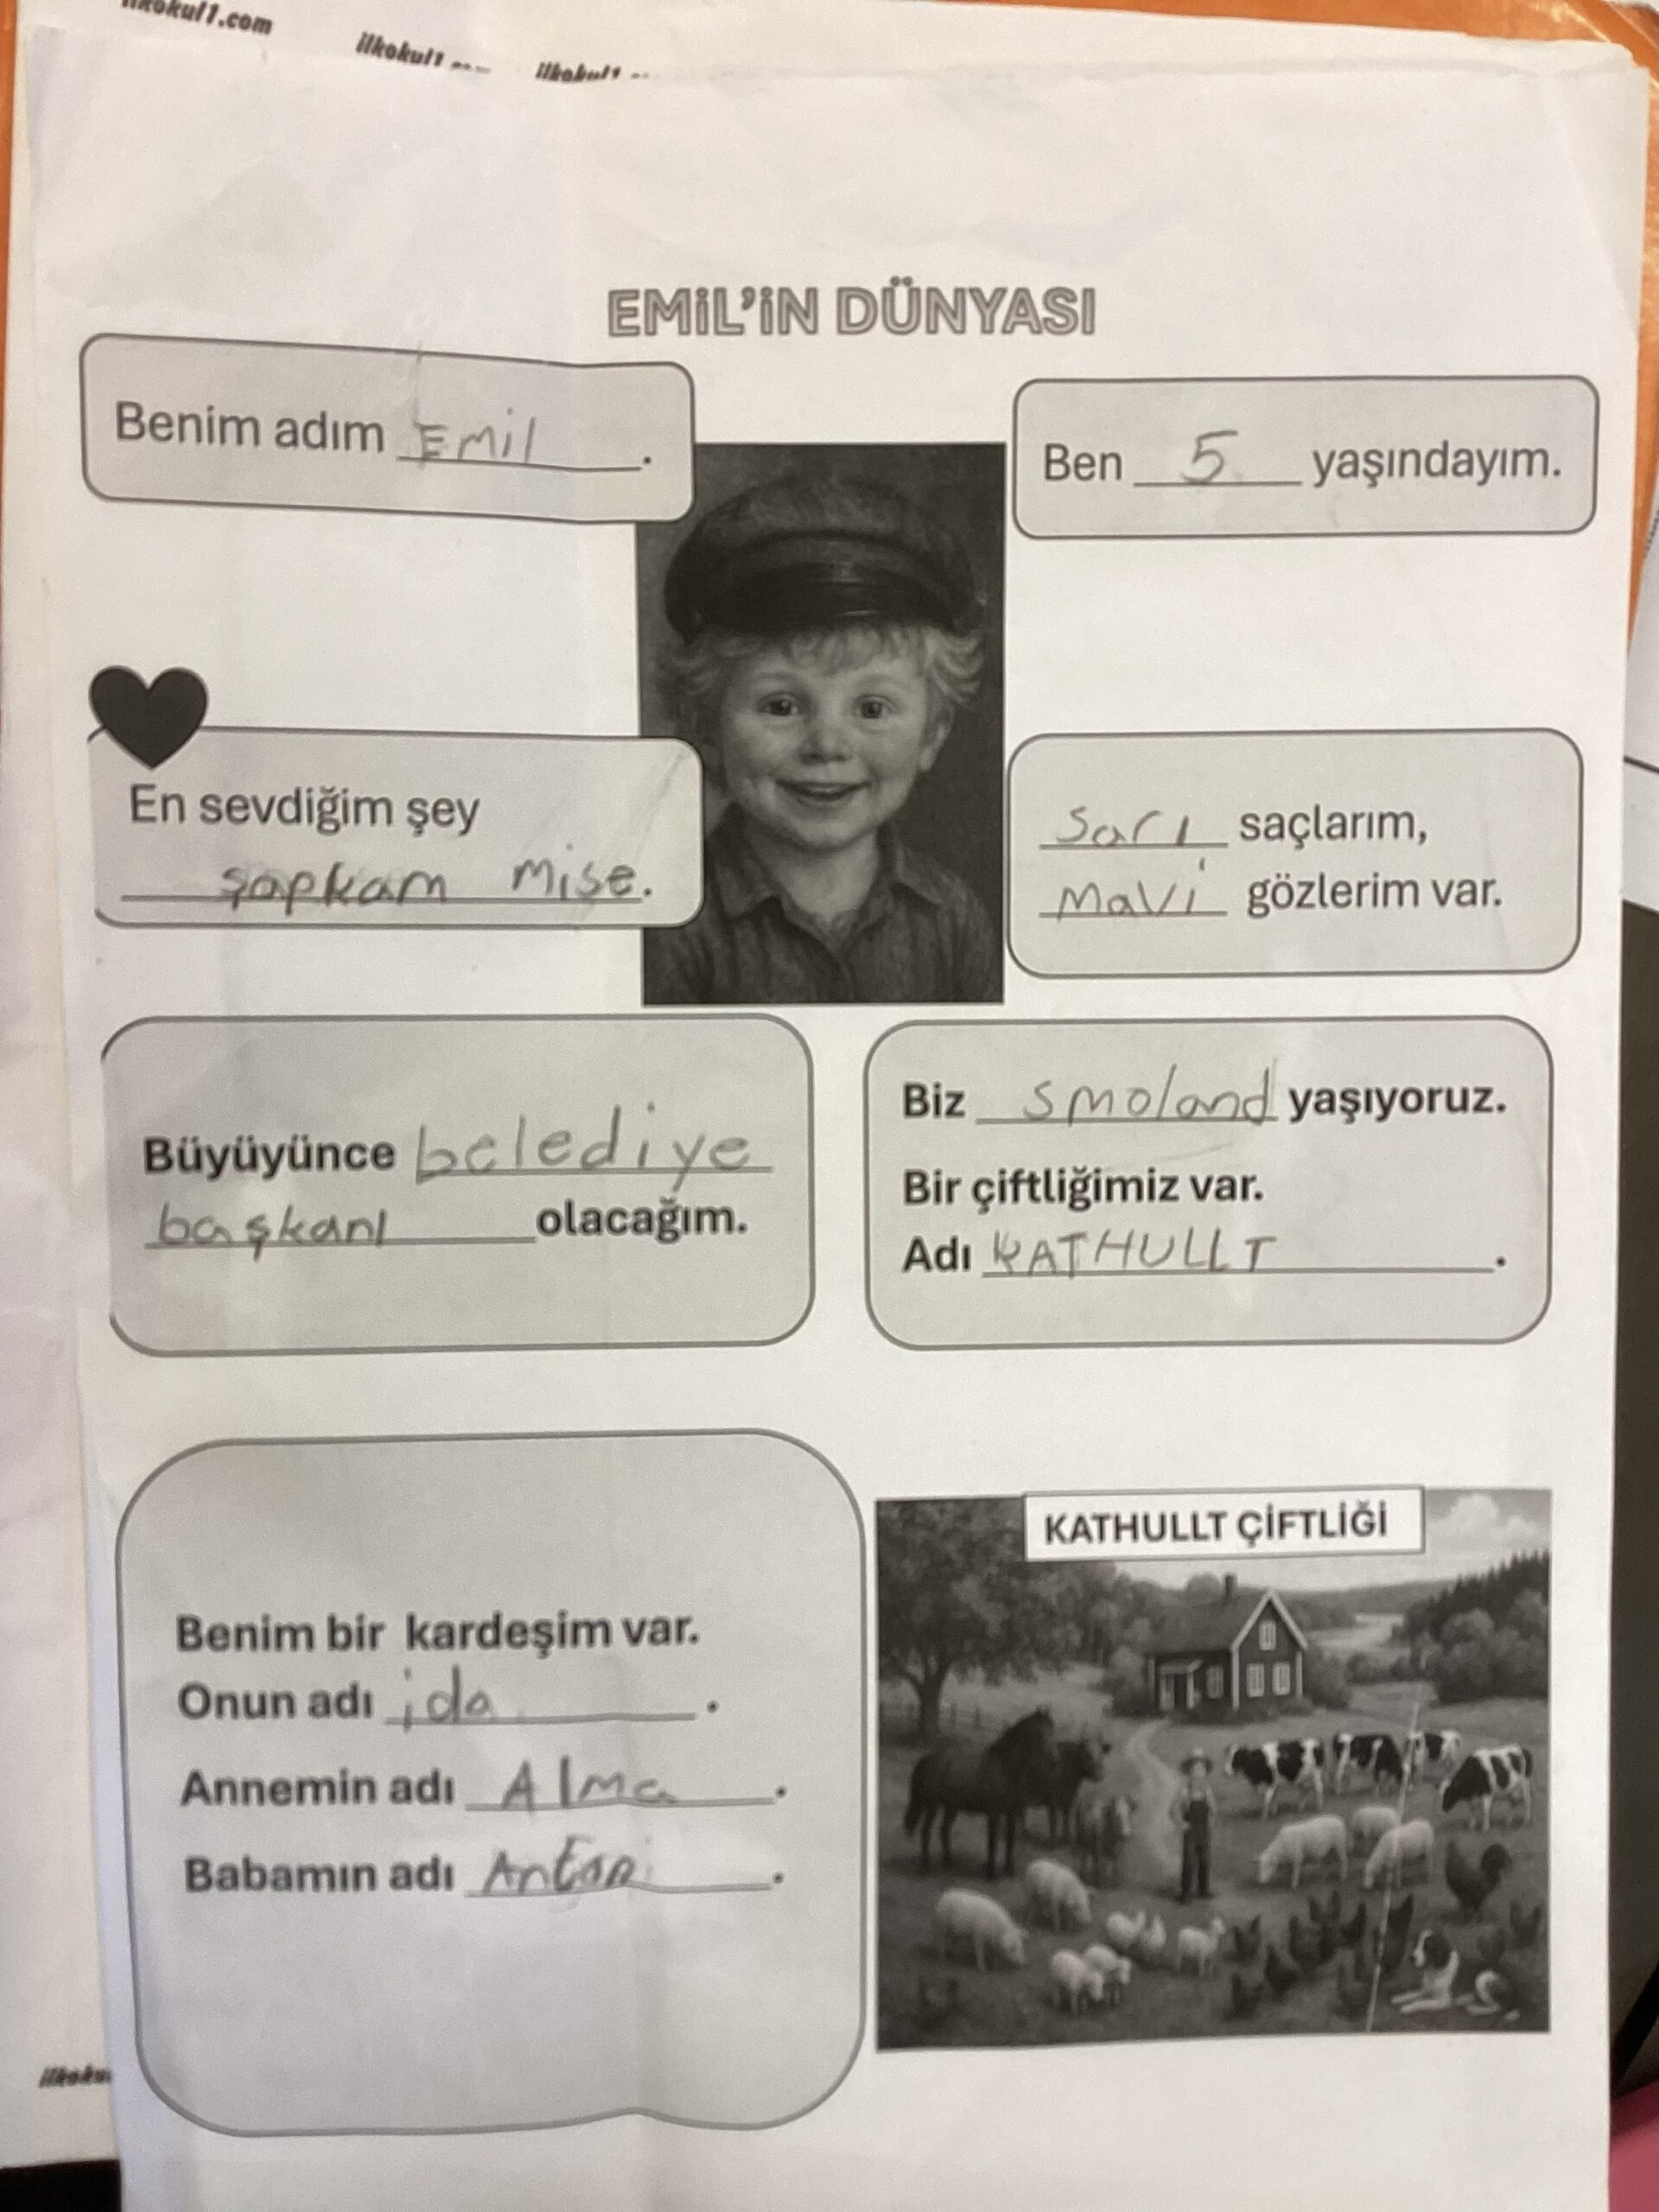 ilkokul1.com
ilkokul1
ilkokul1
EMİL'İN DÜNYASI
Benim adım Emil.
Ben 5 yaşındayım.
En sevdiğim şey
şapkam Mise.
sarı saçlarım,
Mavi gözlerim var.
Büyüyünce belediye
başkanı olacağım.
Biz smoland yaşıyoruz.
Bir çiftliğimiz var.
Adı KATHULLT.
KATHULLT ÇİFTLİĞİ
Benim bir kardeşim var.
Onun adı ida.
Annemin adı Alma.
Babamın adı Anton.
ilkoku